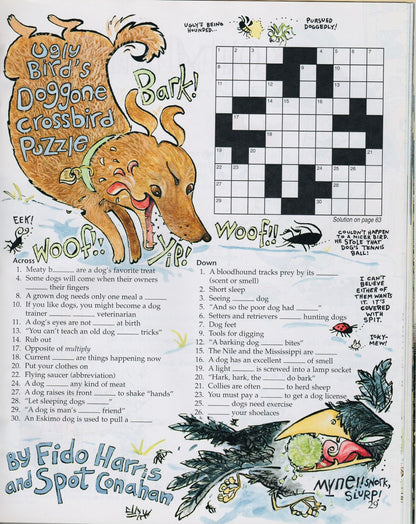 UGLY'S BEING
HOUNDED...
PURSUED
DOGGEDLY!
Ugly
Bird's
Doggone
Crossbird
Puzzle
Bark!
Solution on page 63
EEK!
Woof!!
Yip!
Woof!!
COULDN'T HAPPEN
TO A NICER BIRD.
HE STOLE THAT
DOG'S TENNIS
BALL!
Across
1. Meaty b_____ are a dog's favorite treat
4. Some dogs will come when their owners
_____ their fingers
8. A grown dog needs only one meal a _____
10. If you like dogs, you might become a dog
trainer _____ veterinarian
11. A dog's eyes are not _____ at birth
13. "You can't teach an old dog _____ tricks"
14. Rub out
17. Opposite of multiply
18. Current _____ are things happening now
20. Put your clothes on
22. Flying saucer (abbreviation)
24. A dog _____ any kind of meat
27. A dog raises its front _____ to shake "hands"
28. "Let sleeping dogs _____"
29. "A dog is man's _____ friend"
30. An Eskimo dog is used to pull a _____
Down
1. A bloodhound tracks prey by its _____
(scent or smell)
2. Short sleep
3. Seeing _____ dog
5. "And so the poor dog had _____"
6. Setters and retrievers _____ hunting dogs
7. Dog feet
9. Tools for digging
12. "A barking dog _____ bites"
15. The Nile and the Mississippi are _____
16. A dog has an excellent _____ of smell
19. A light _____ is screwed into a lamp socket
20. "Hark, hark, the _____ do bark"
21. Collies are often _____ to herd sheep
23. You must pay a _____ to get a dog license
25. _____ dogs need exercise
26. _____ your shoelaces
I CAN'T
BELIEVE
EITHER OF
THEM WANTS
IT. IT'S
COVERED
WITH
SPIT.
ICKY-
MEW!
By Fido Harris
and Spot Conahan
Myne!! Snork,
SLURP!
29